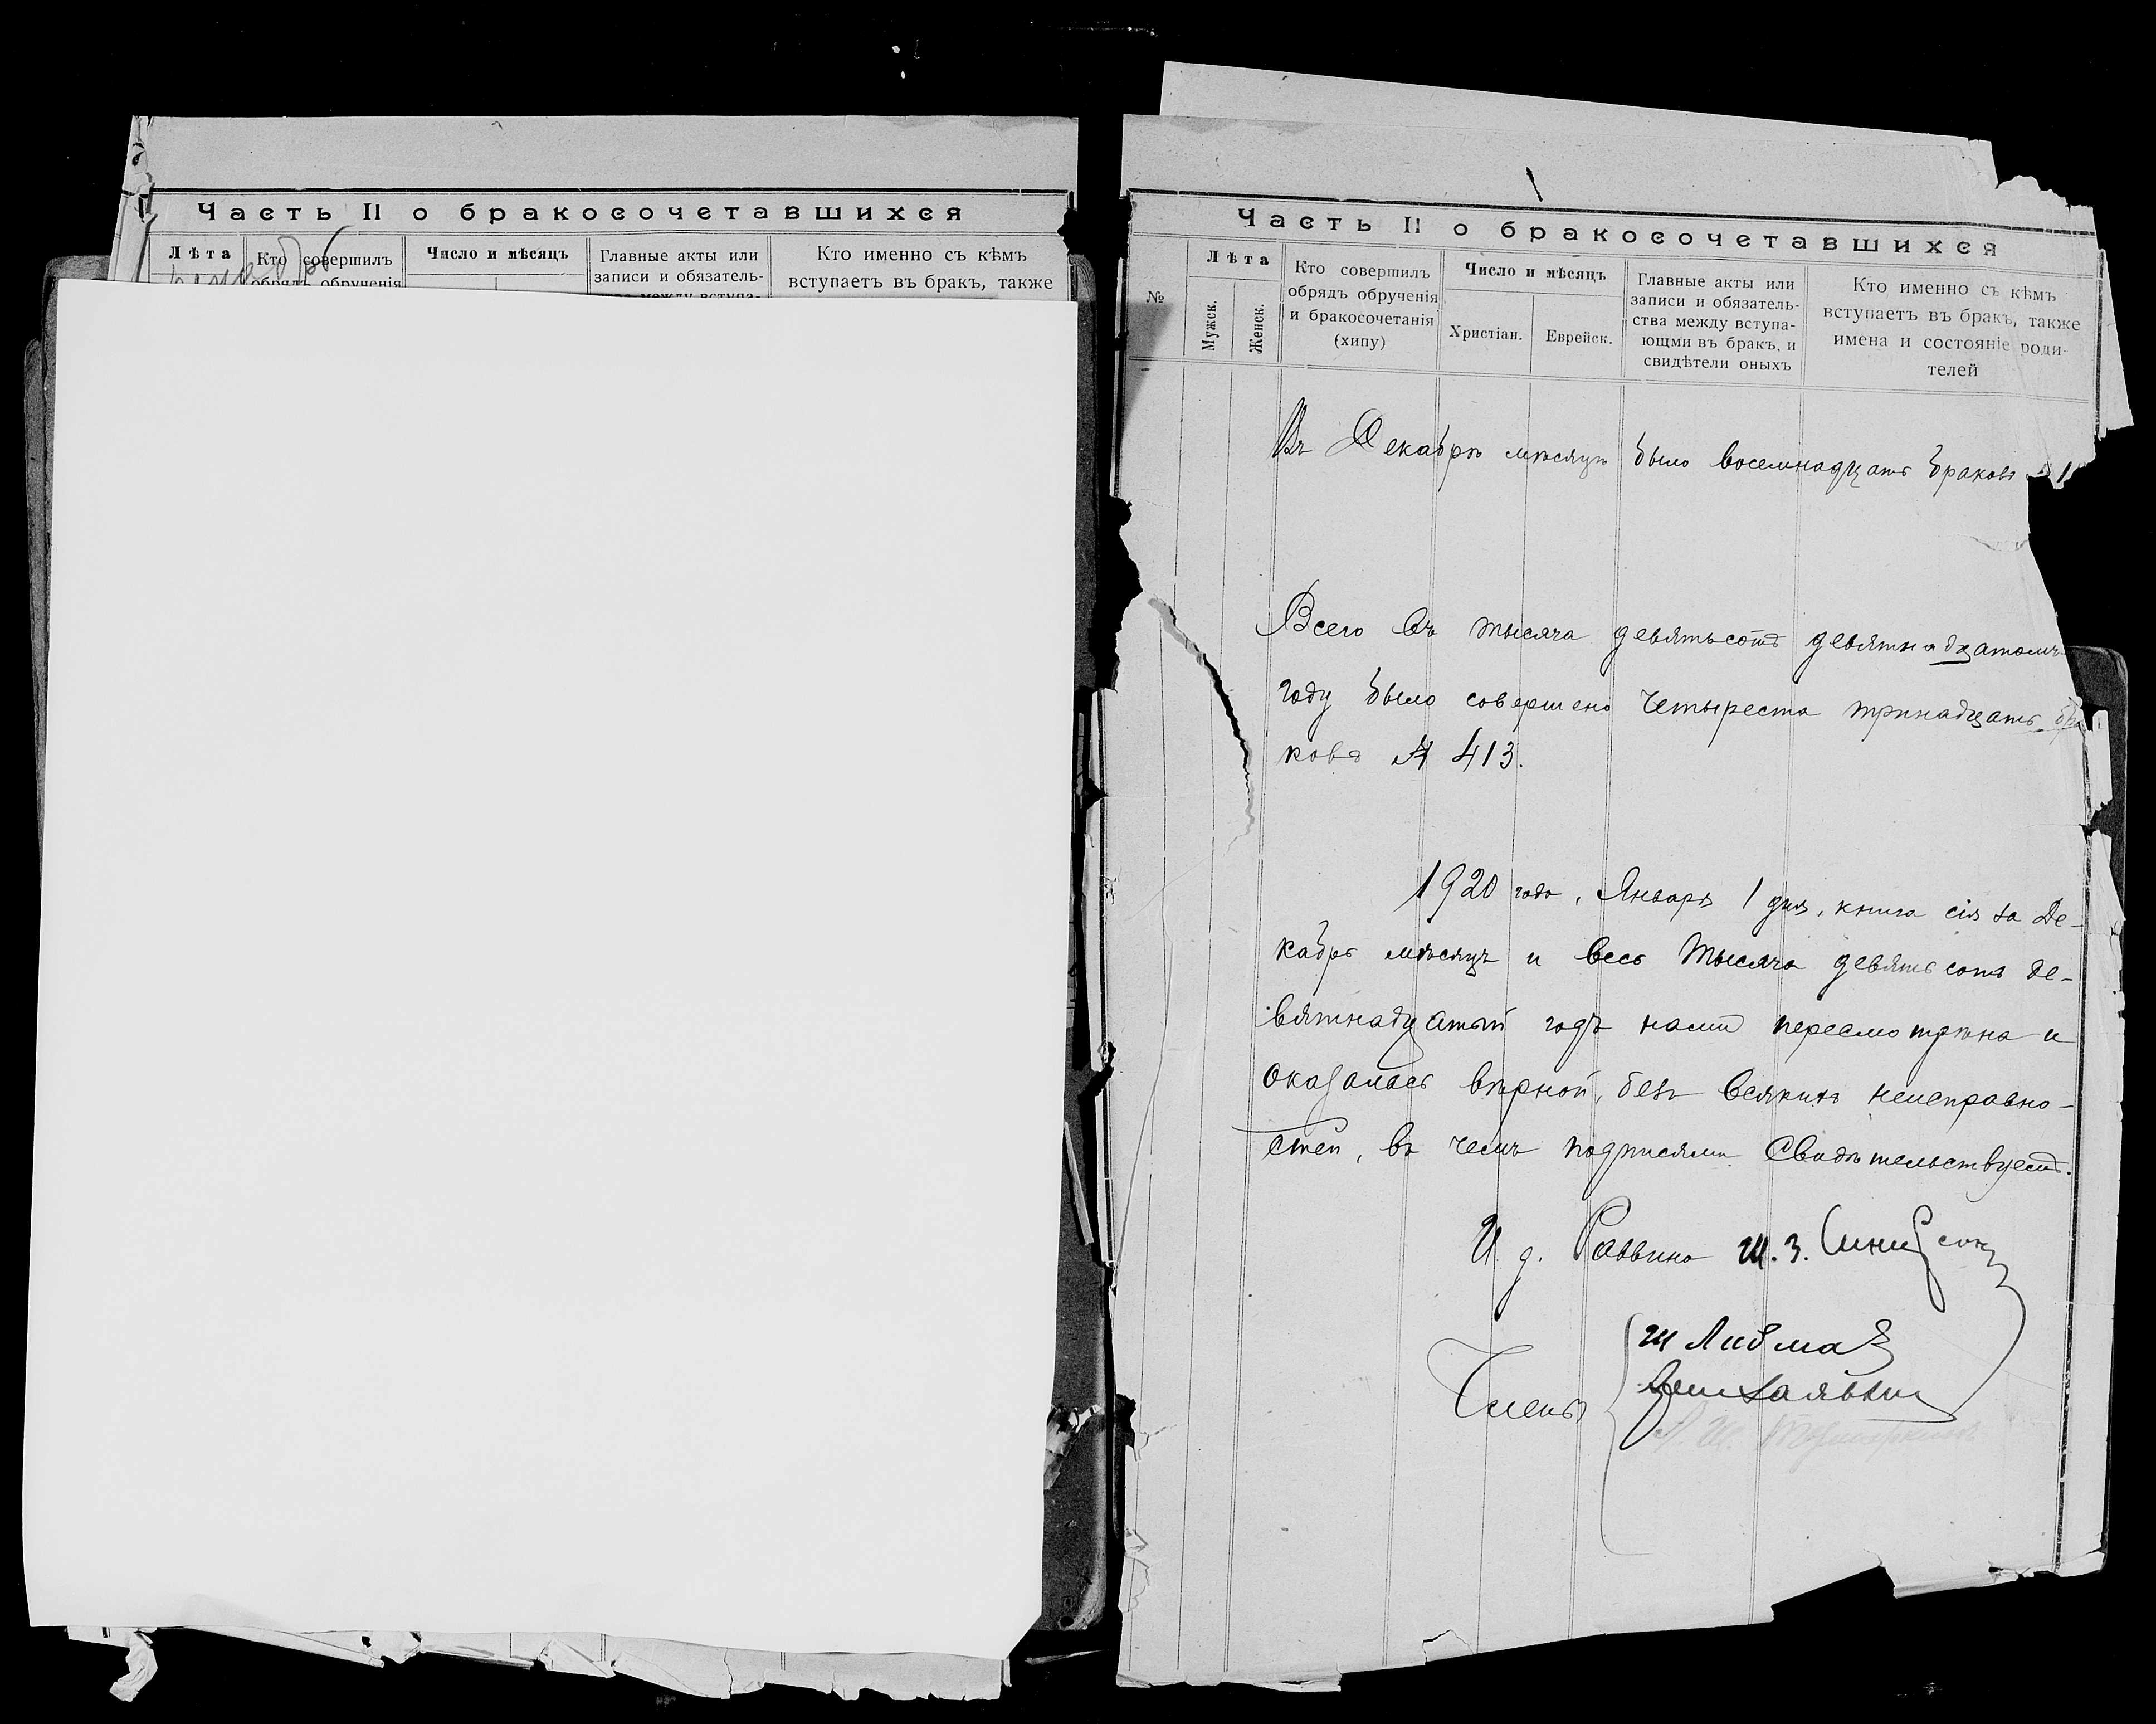 Часть II о бракосочетавшихся
Лѣта
Кто совершилъ
обрядъ обрученія
Число и мѣсяцъ
Главные акты или
записи и обязатель-
Кто именно съ кѣмъ
вступаетъ въ бракъ, также
Часть II о бракосочетавшихся
№
Лѣта
Мужск.
Женск.
Кто совершилъ
обрядъ обрученія
и бракосочетанія
(хипу)
Число и мѣсяцъ
Христіан.
Еврейск.
Главные акты или
записи и обязатель-
ства между вступа-
ющми въ бракъ, и
свидѣтели оныхъ
Кто именно съ кѣмъ
вступаетъ въ бракъ, также
имена и состояніе роди-
телей
Въ Декабрѣ мѣсяцѣ было восемнадцать браковъ
Всего въ тысяча девятьсотъ девятнадцатомъ
году было совершено четыреста тринадцать бра
ковъ № 413.
1920 года, Январь 1 дня, книга сія за Де-
кабрь мѣсяцъ и весь тысяча девятьсотъ де-
вятнадцатый годъ нами пересмотрѣна и
оказалась вѣрной, безъ всякихъ неисправно-
стей, въ чемъ подписями свидѣтельствуемъ.
И. д. Раввина Ш. З.
Члены